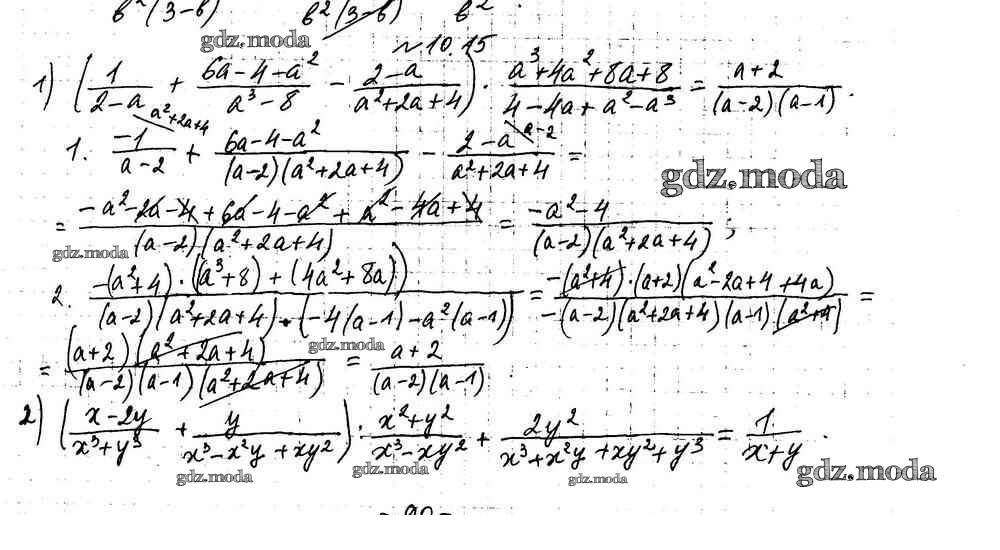 в²(3-в) в²(3-в) в²
gdz.moda
№10.15
1) (1/(2-a) + (6a-4-a²)/(a³-8) - (2-a)/(a²+2a+4)) · (a³+4a²+8a+8)/(4-4a+a²-a³) = (a+2)/((a-2)(a-1)).
1. -1/(a-2) \a²+2a+4 + (6a-4-a²)/((a-2)(a²+2a+4)) - (2-a)/(a²+2a+4) \a-2 =
gdz.moda
= (-a²-2a-4+6a-4-a²+a²-4a+4)/((a-2)(a²+2a+4)) = (-a²-4)/((a-2)(a²+2a+4));
gdz.moda
2. (-(a²+4)·((a³+8)+(4a²+8a)))/((a-2)(a²+2a+4)·(-4(a-1)-a²(a-1))) = (-(a²+4)·(a+2)(a²-2a+4+4a))/(-(a-2)(a²+2a+4)(a-1)(a²+4)) =
gdz.moda
= ((a+2)(a²+2a+4))/((a-2)(a-1)(a²+2a+4)) = (a+2)/((a-2)(a-1)).
2) ((x-2y)/(x³+y³) + y/(x³-x²y+xy²)) · (x²+y²)/(x³-xy²) + 2y²/(x³+x²y+xy²+y³) = 1/(x+y).
gdz.moda gdz.moda gdz.moda